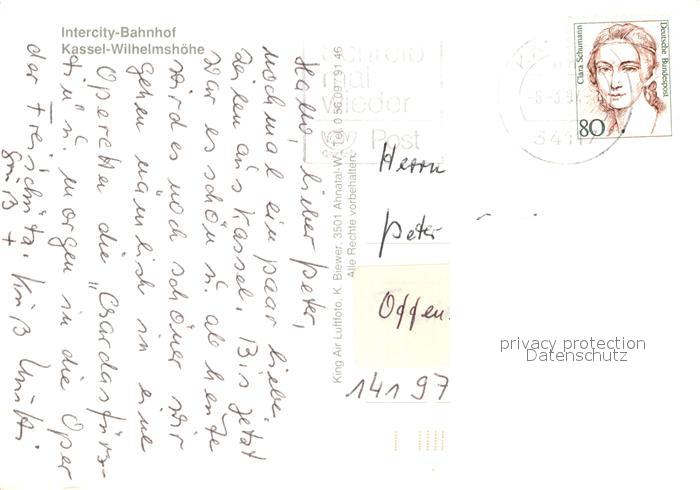 Intercity-Bahnhof
Kassel-Wilhelmshöhe
Hallo, lieber Peter,
nochmal ein paar liebe
Zeilen aus Kassel. Bis jetzt
war es schön u. ab heute
wird es noch schöner wir
gehen nämlich in eine
Operette die „Csardasfürs-
tin" u. morgen in die Oper
der Freischütz.
Gruß + Kuß
King Air Luftfoto, K. Biewer, 3501 Ahnatal-W., Tel. 0 56 09 / 91 46
Alle Rechte vorbehalten.
schreib
mal
wieder
Post
34117
Clara Schumann
Deutsche Bundespost
80
Herrn
Peter
Offen
14197
privacy protection
Datenschutz